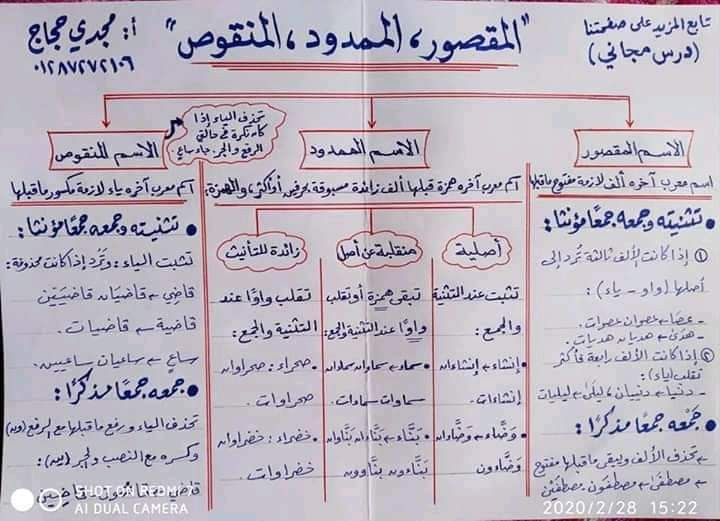 تابع المزيد على صفحتنا
(درس مجاني)
"المقصور، الممدود، المنقوص"
أ: مجدي حجاج
٠١٢٨٧٢٧٢١٠٦
الاسم المقصور
اسم معرب آخره ألف لازمة مفتوح ما قبلها
• تثنيته وجمعه جمعًا مؤنثا:
① إذا كانت الألف ثالثة تُرد إلى
أصلها (واو - ياء):
- عصا ← عصوان عصوات.
- هدى ← هديان هديات.
② إذا كانت الألف رابعة فأكثر
تقلب (ياء):
- دنيا ← دنييان، ليلى ← ليليات
• جَمْعه جمعًا مذكرًا:
← تحذف الألف ويبقى ما قبلها مفتوح
← مصطفى ← مصطفَون مصطفَيْن
الاسم الممدود
اسم معرب آخره همزة قبلها ألف زائدة مسبوقة بحرفين أو أكثر، والهمزة:
أصلية
تثبت عند التثنية
والجمع:
• إنشاء ← إنشاءان
إنشاءات.
• وَضَّاء ← وَضَّاءان
وَضَّاءون
منقلبة عن أصل
تبقى همزة أو تقلب
واوًا عند التثنية والجمع:
• سماء ← سماوان سماءان
سماوات سماءات.
• بَنَّاء ← بَنَّاءان بَنَّاوان
بَنَّاءون بنَّاوون
زائدة للتأنيث
تقلب واوًا عند
التثنية والجمع:
• صحراء: صحراوان
صحراوات.
• خضراء: خضراوان
خضراوات.
تحذف الياء إذا
كانت نكرة في حالتي
الرفع والجر. جاء ساعٍ.
الاسم المنقوص
اسم معرب آخره ياء لازمة مكسور ما قبلها
• تثنيته وجمعه جمعًا مؤنثا:
تثبت الياء: وتُرد إذا كانت محذوفة:
قاضي ← قاضيَان قاضيَيَن
قاضية ← قاضيات.
ساعٍ ← ساعيان ساعيين.
• جمعه جمعًا مذكرًا:
تحذف الياء ورفع ما قبلها مع الرفع (ون)
وكسره مع النصب والجر (ين):
قاضين
SHOT ON REDMI 7
AI DUAL CAMERA
2020/2/28 15:22